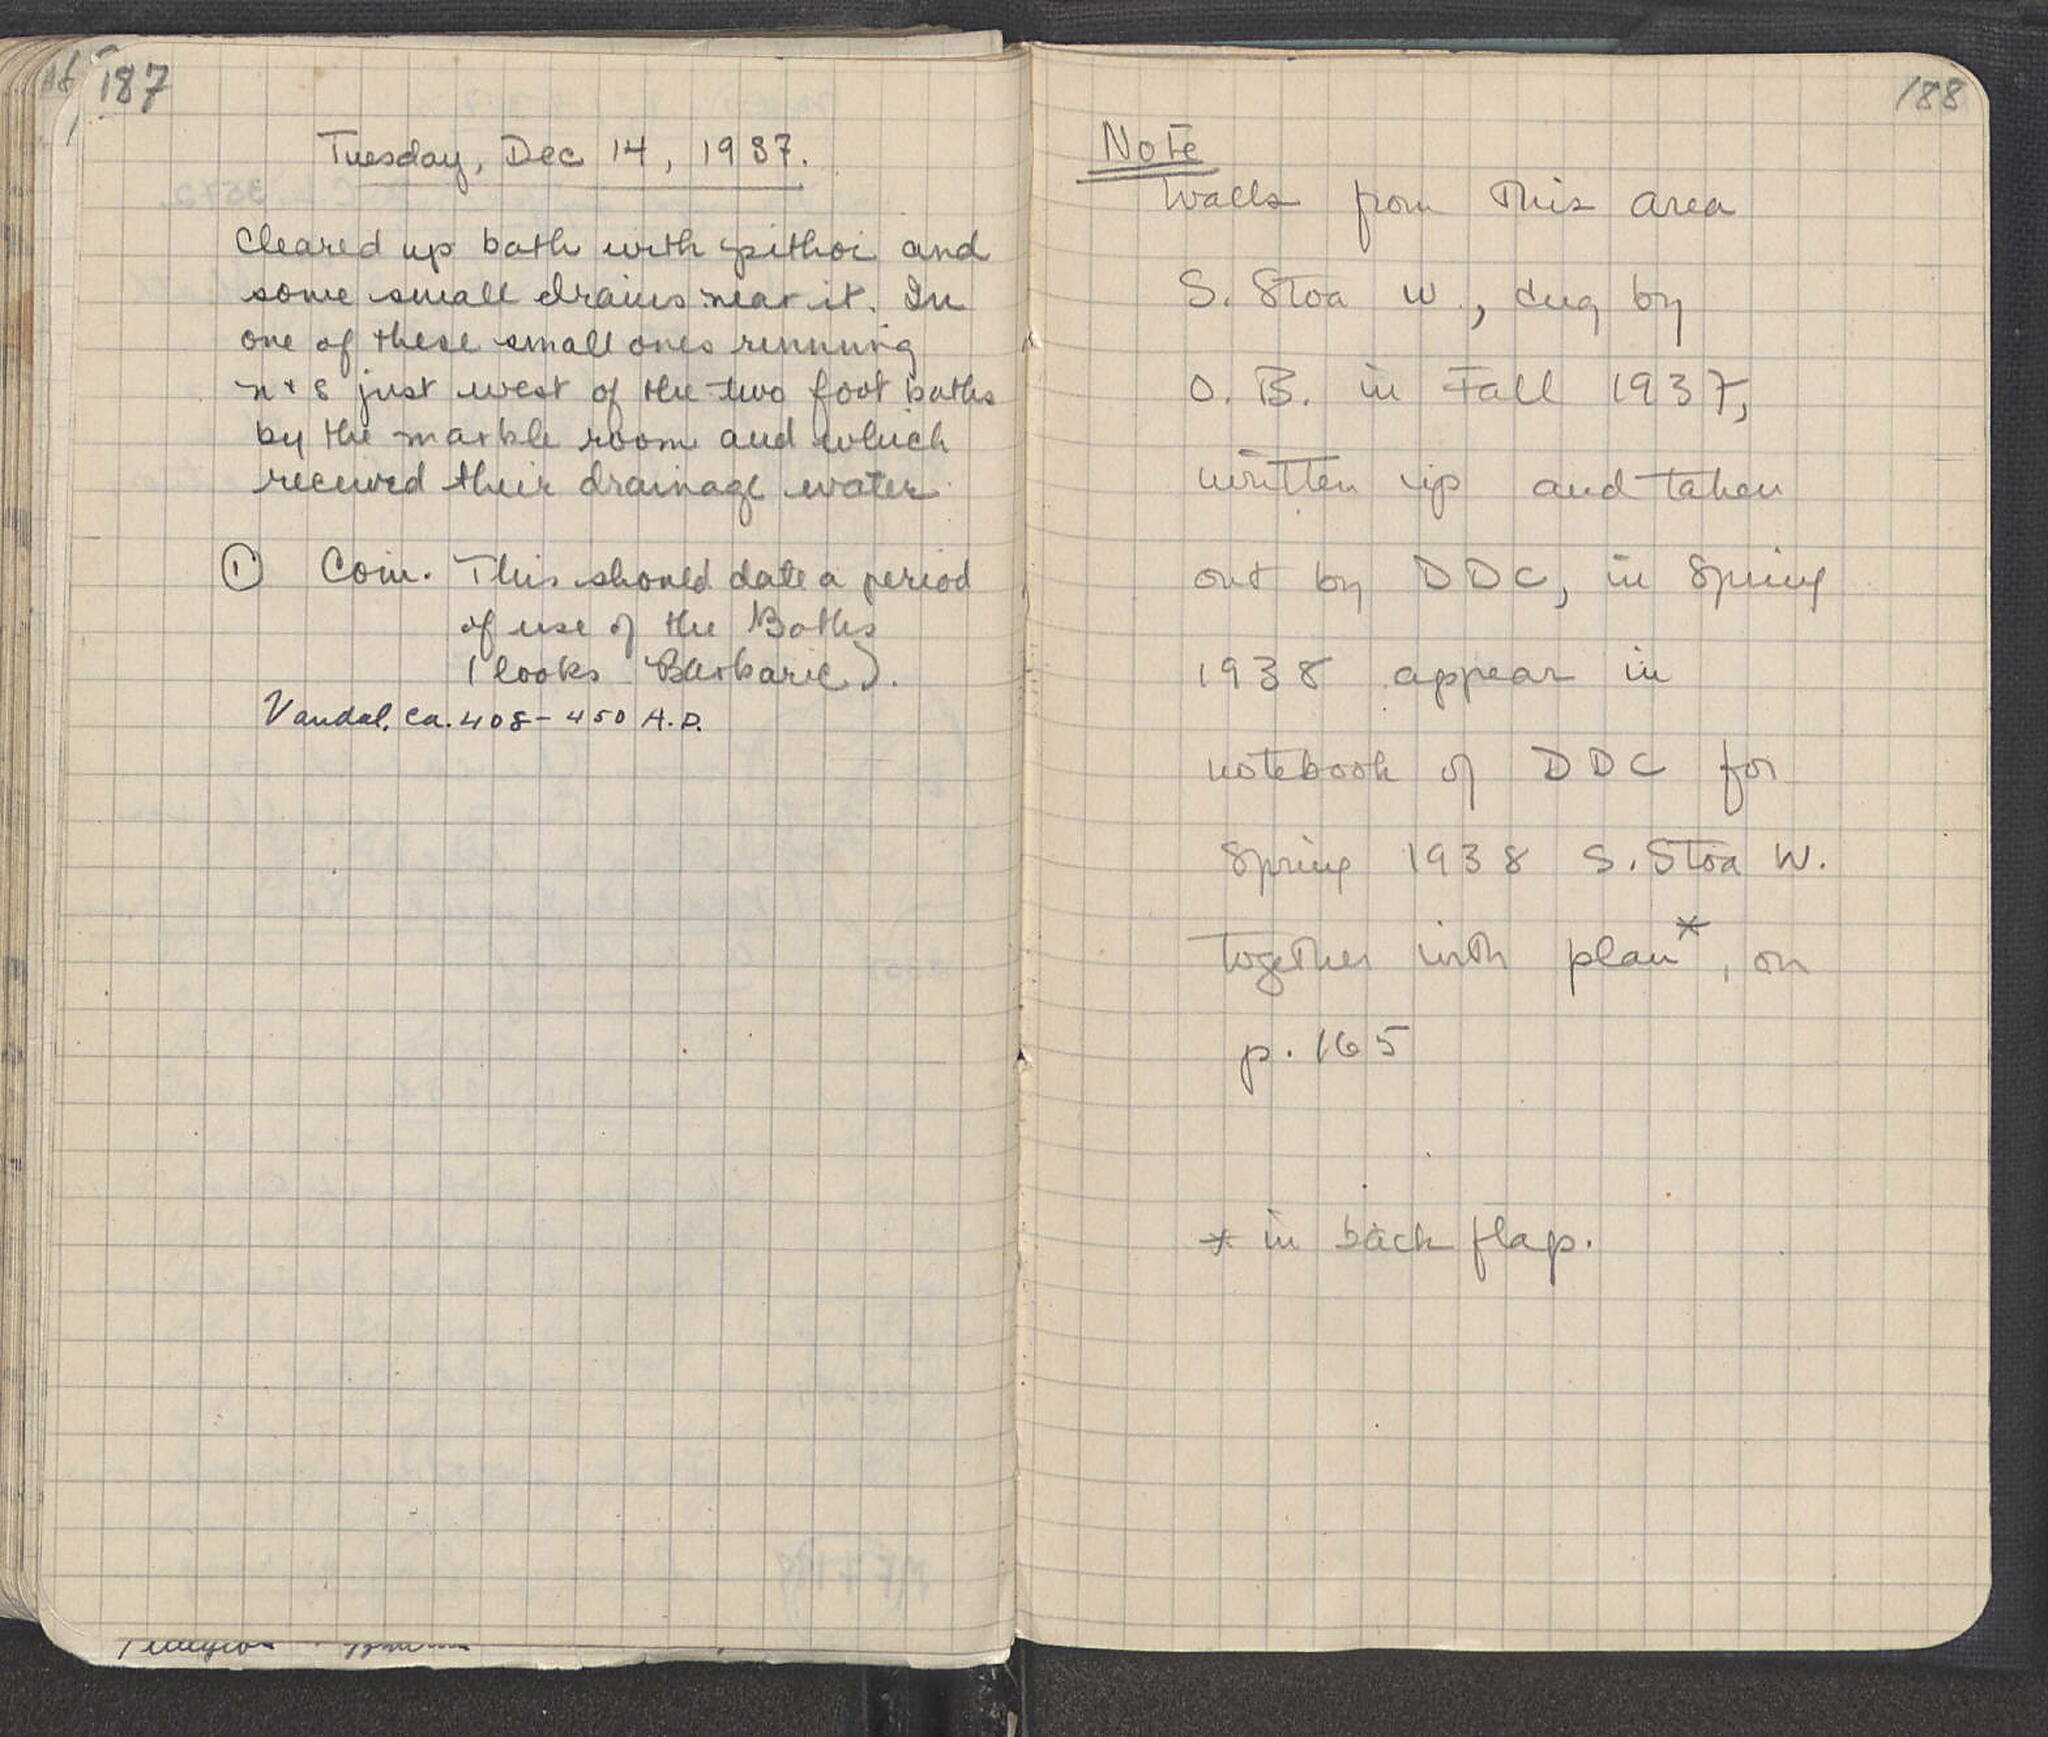 187
Tuesday, Dec 14, 1937.
Cleared up bath with pithoi and
some small drains near it. In
one of these small ones running
n + s just west of the two foot baths
by the marble room and which
received their drainage water
① Coin. This should date a period
of use of the Baths
(looks Barbaric).
Vandal, ca. 408-450 A.D.
188
Note
Walls from this area
S. Stoa W., dug by
O. B. in Fall 1937,
written up and taken
out by DDC, in Spring
1938 appear in
notebook of DDC for
Spring 1938 S. Stoa W.
together with plan*, on
p. 165
* in back flap.